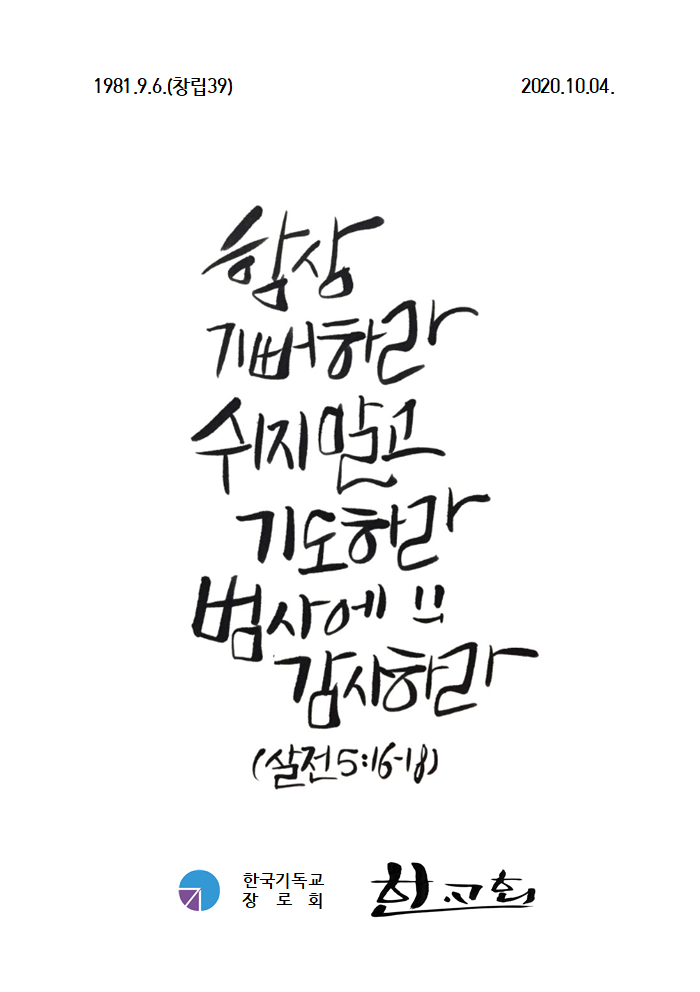 1981.9.6.(창립39)
2020.10.04.
항상
기뻐하라
쉬지말고
기도하라
범사에
감사하라
(살전5:16-18)
한국기독교
장로회
한교회